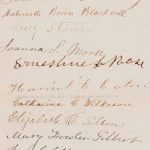 Antoinette Brown Blackwell
Lucy Stone
Joanna S. Morse
Ernestine L. Rose
Harriet E. Eaton
Catharine C. Wilkeson
Elizabeth R. Tilton
Mary Fowler Gilbert